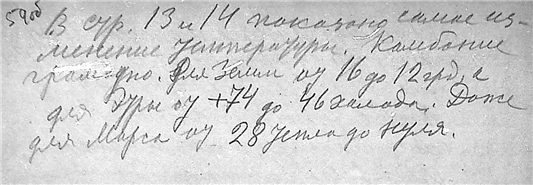 59об
В стр. 13 и 14 показано самое из-
менение температуры. Колебание
громадно. Для Земли от 16 до 12 грд, а
для Эры от +74 до 46 холода. Даже
для Марса от 28 тепла до нуля.